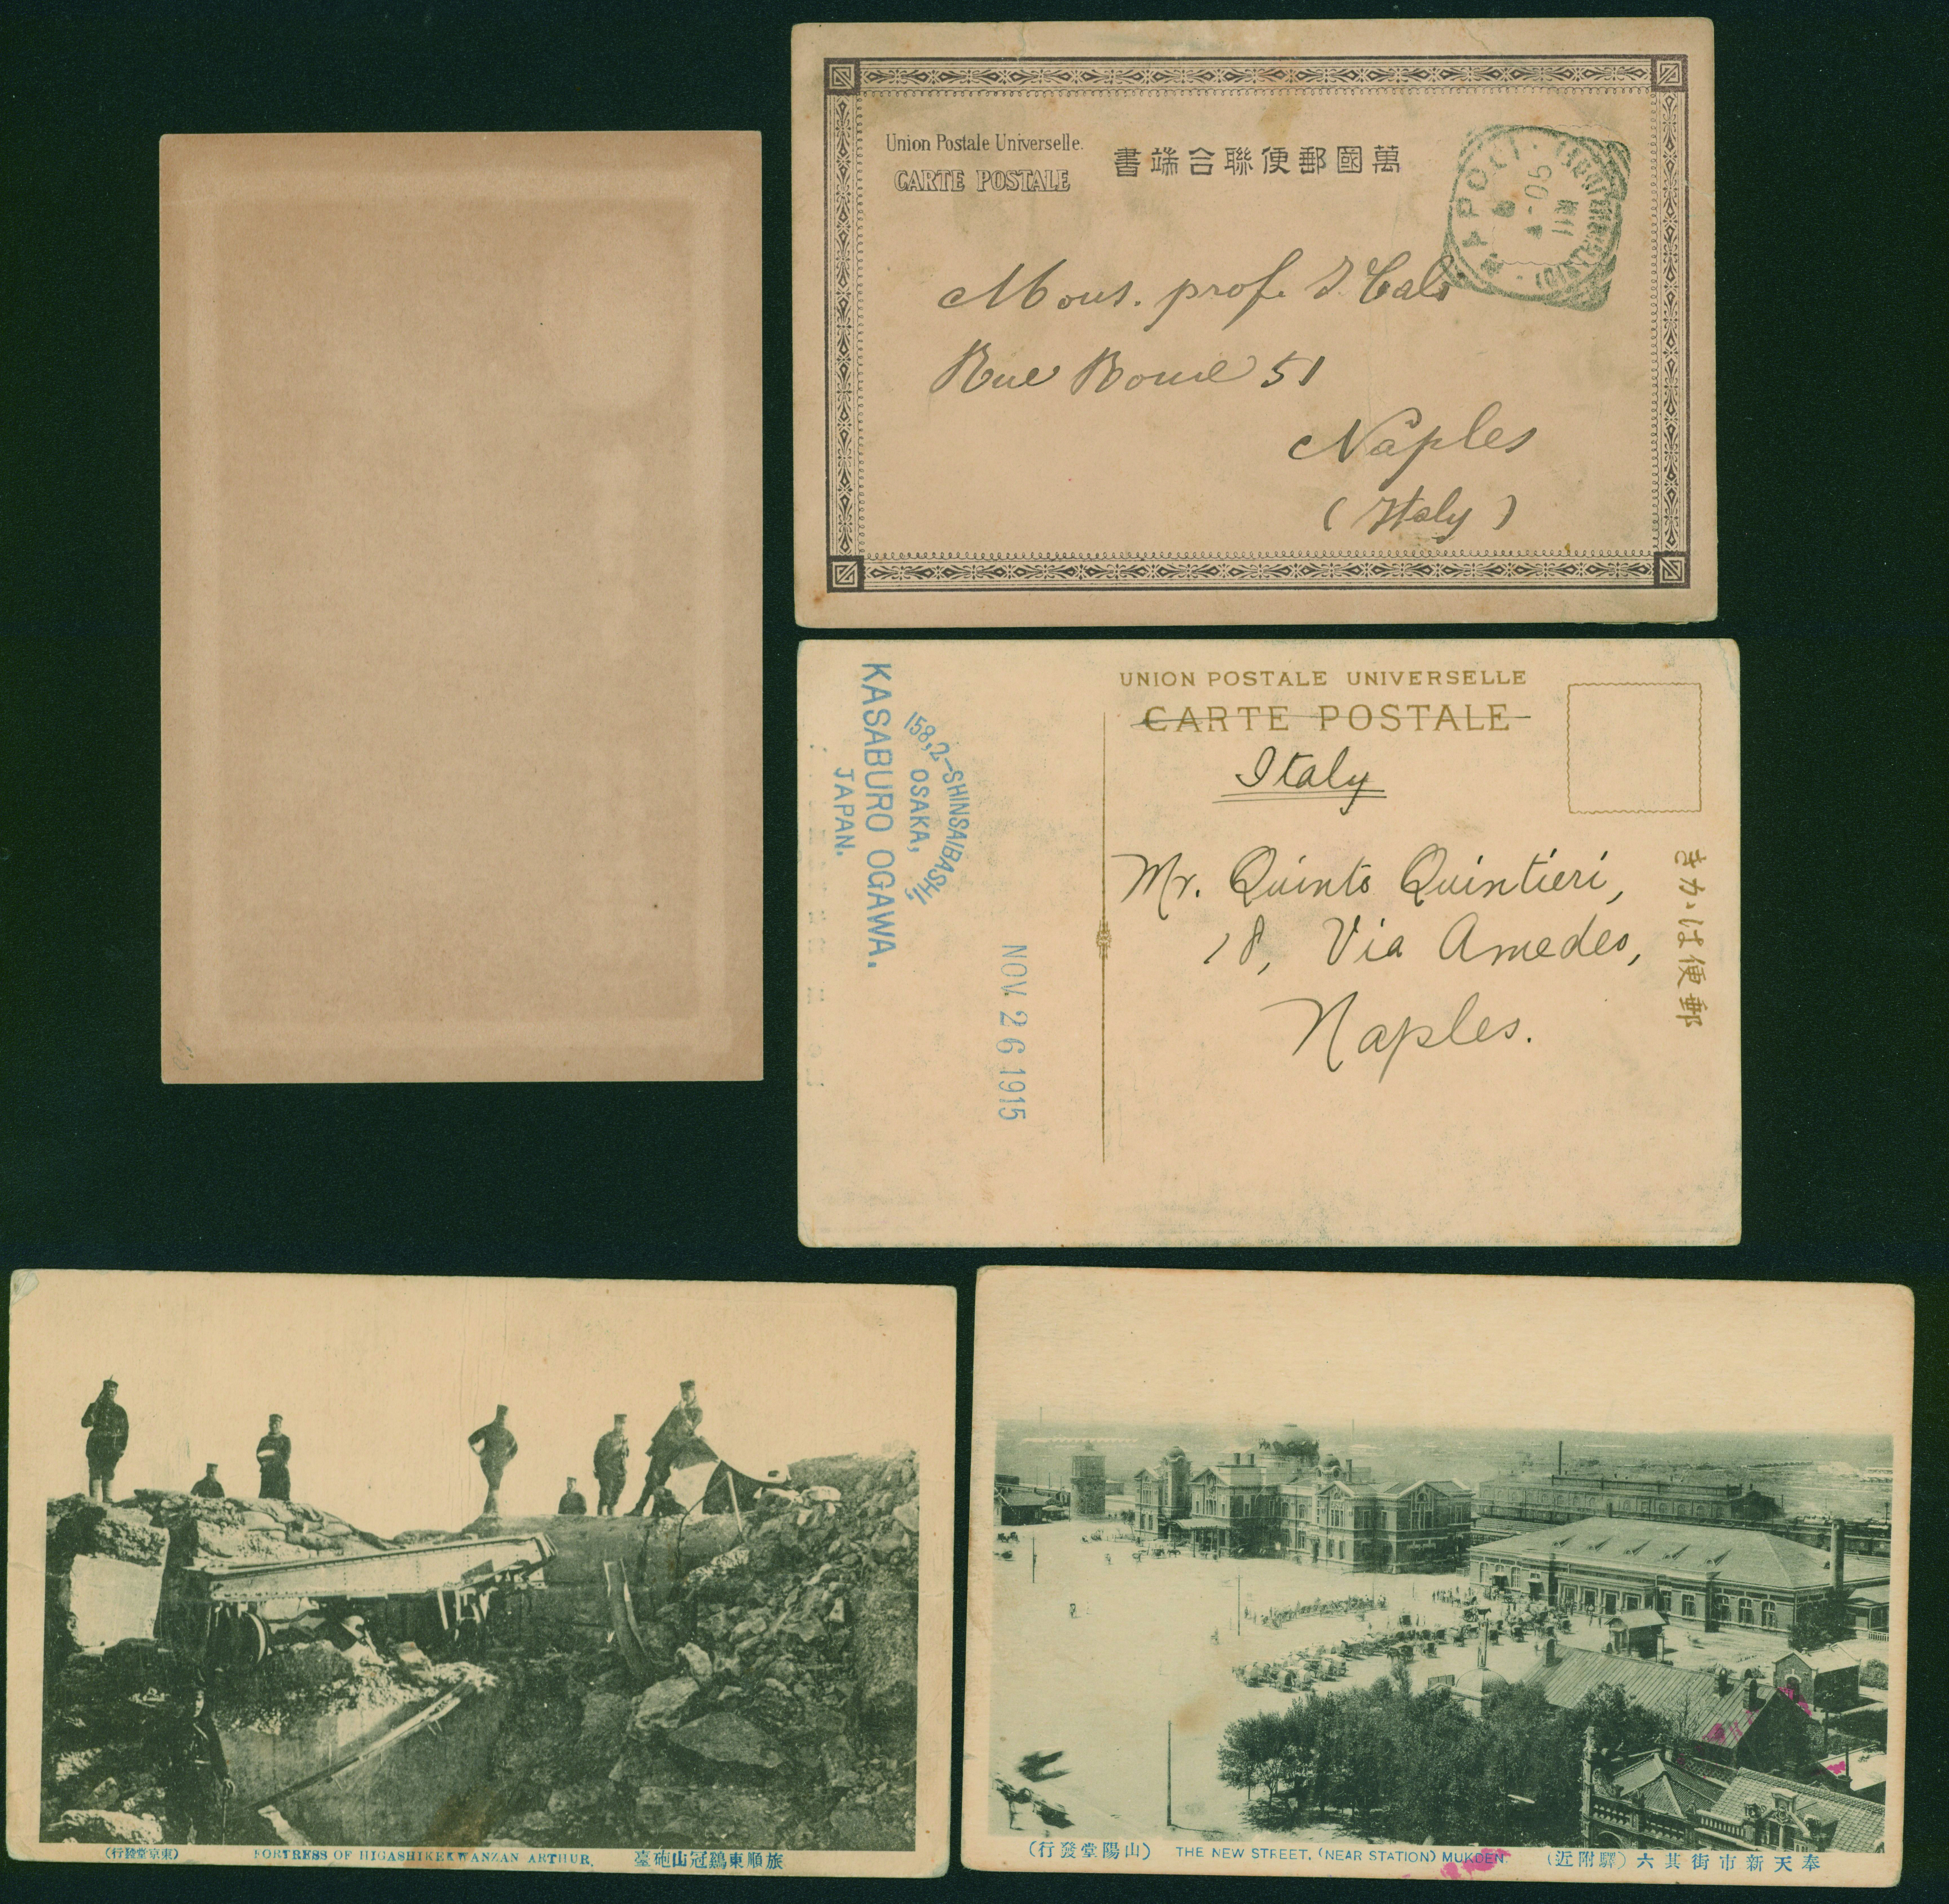 Union Postale Universelle.
CARTE POSTALE
書端合聯便郵國萬
NAPOLI
4-06
Mons. prof. I. Calò
Rue Rome 51
Naples
(Italy)
UNION POSTALE UNIVERSELLE
CARTE POSTALE
Italy
Mr. Quinto Quintieri,
18, Via Amedeo,
Naples.
きかゝは便郵
158,2-SHINSAIBASHI,
OSAKA,
KASABURO OGAWA.
JAPAN.
NOV. 26 1915
(行發堂京東) FORTRESS OF HIGASHIKEKWANZAN ARTHUR. 臺砲山冠鷄東順旅
(行發堂陽山) THE NEW STREET. (NEAR STATION) MUKDEN. (近附驛) 六其街市新天奉